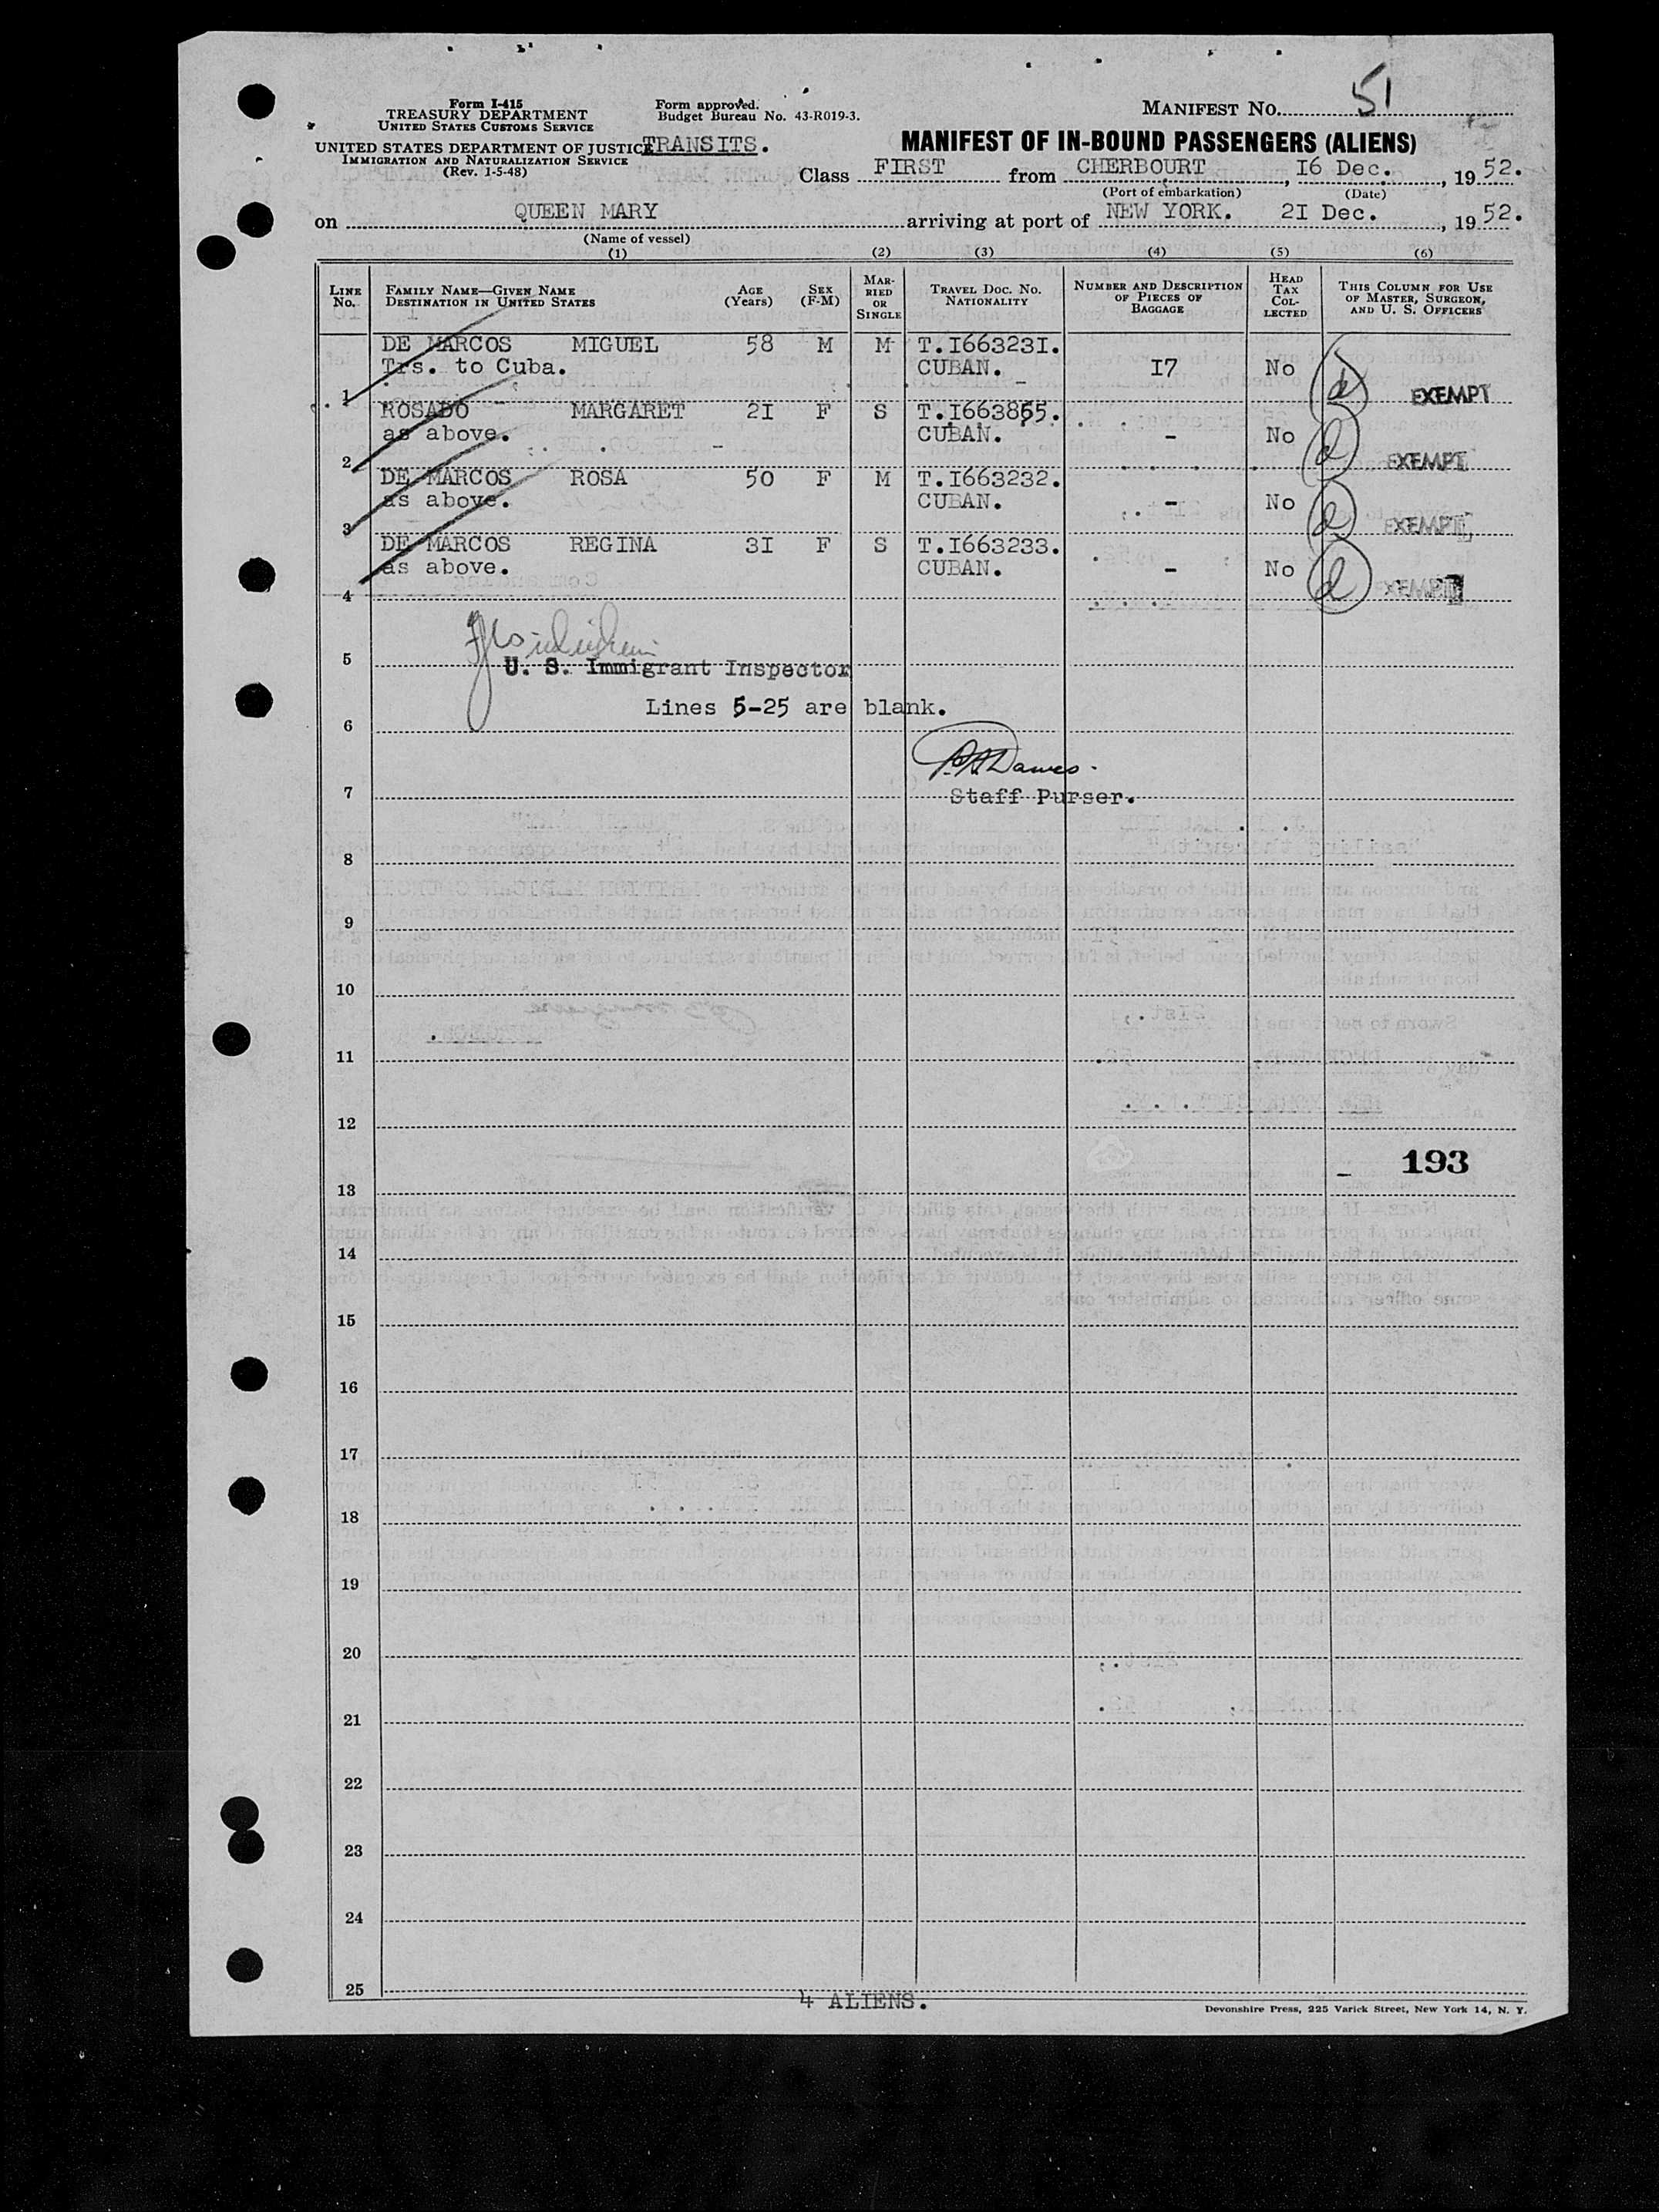 Form I-415
TREASURY DEPARTMENT
UNITED STATES CUSTOMS SERVICE
UNITED STATES DEPARTMENT OF JUSTICE
IMMIGRATION AND NATURALIZATION SERVICE
(Rev. 1-5-48)
Form approved.
Budget Bureau No. 43-R019-3.
TRANSITS.
MANIFEST NO. 51
MANIFEST OF IN-BOUND PASSENGERS (ALIENS)
Class FIRST from CHERBOURT, I6 Dec., 1952.
(Port of embarkation) (Date)
on QUEEN MARY arriving at port of NEW YORK. 2I Dec., 1952.
(Name of vessel)
(1) (2) (3) (4) (5) (6)
LINE NO. FAMILY NAME—GIVEN NAME DESTINATION IN UNITED STATES AGE (YEARS) SEX (F-M) MARRIED OR SINGLE TRAVEL DOC. NO. NATIONALITY NUMBER AND DESCRIPTION OF PIECES OF BAGGAGE HEAD TAX COLLECTED THIS COLUMN FOR USE OF MASTER, SURGEON, AND U. S. OFFICERS
DE MARCOS MIGUEL 58 M M T.I66323I.
Trs. to Cuba. CUBAN. I7 No d
1 EXEMPT
ROSADO MARGARET 2I F S T.I663865.
as above. CUBAN. - No d
2 EXEMPT
DE MARCOS ROSA 50 F M T.I663232.
as above. CUBAN. - No d
3 EXEMPT
DE MARCOS REGINA 3I F S T.I663233.
as above. CUBAN. - No d
4 EXEMPT
5
U. S. Immigrant Inspector
Lines 5-25 are blank.
6
Dawes.
7 Staff Purser.
8
9
10
11
12
193
13
14
15
16
17
18
19
20
21
22
23
24
25
4 ALIENS.
Devonshire Press, 225 Varick Street, New York 14, N. Y.